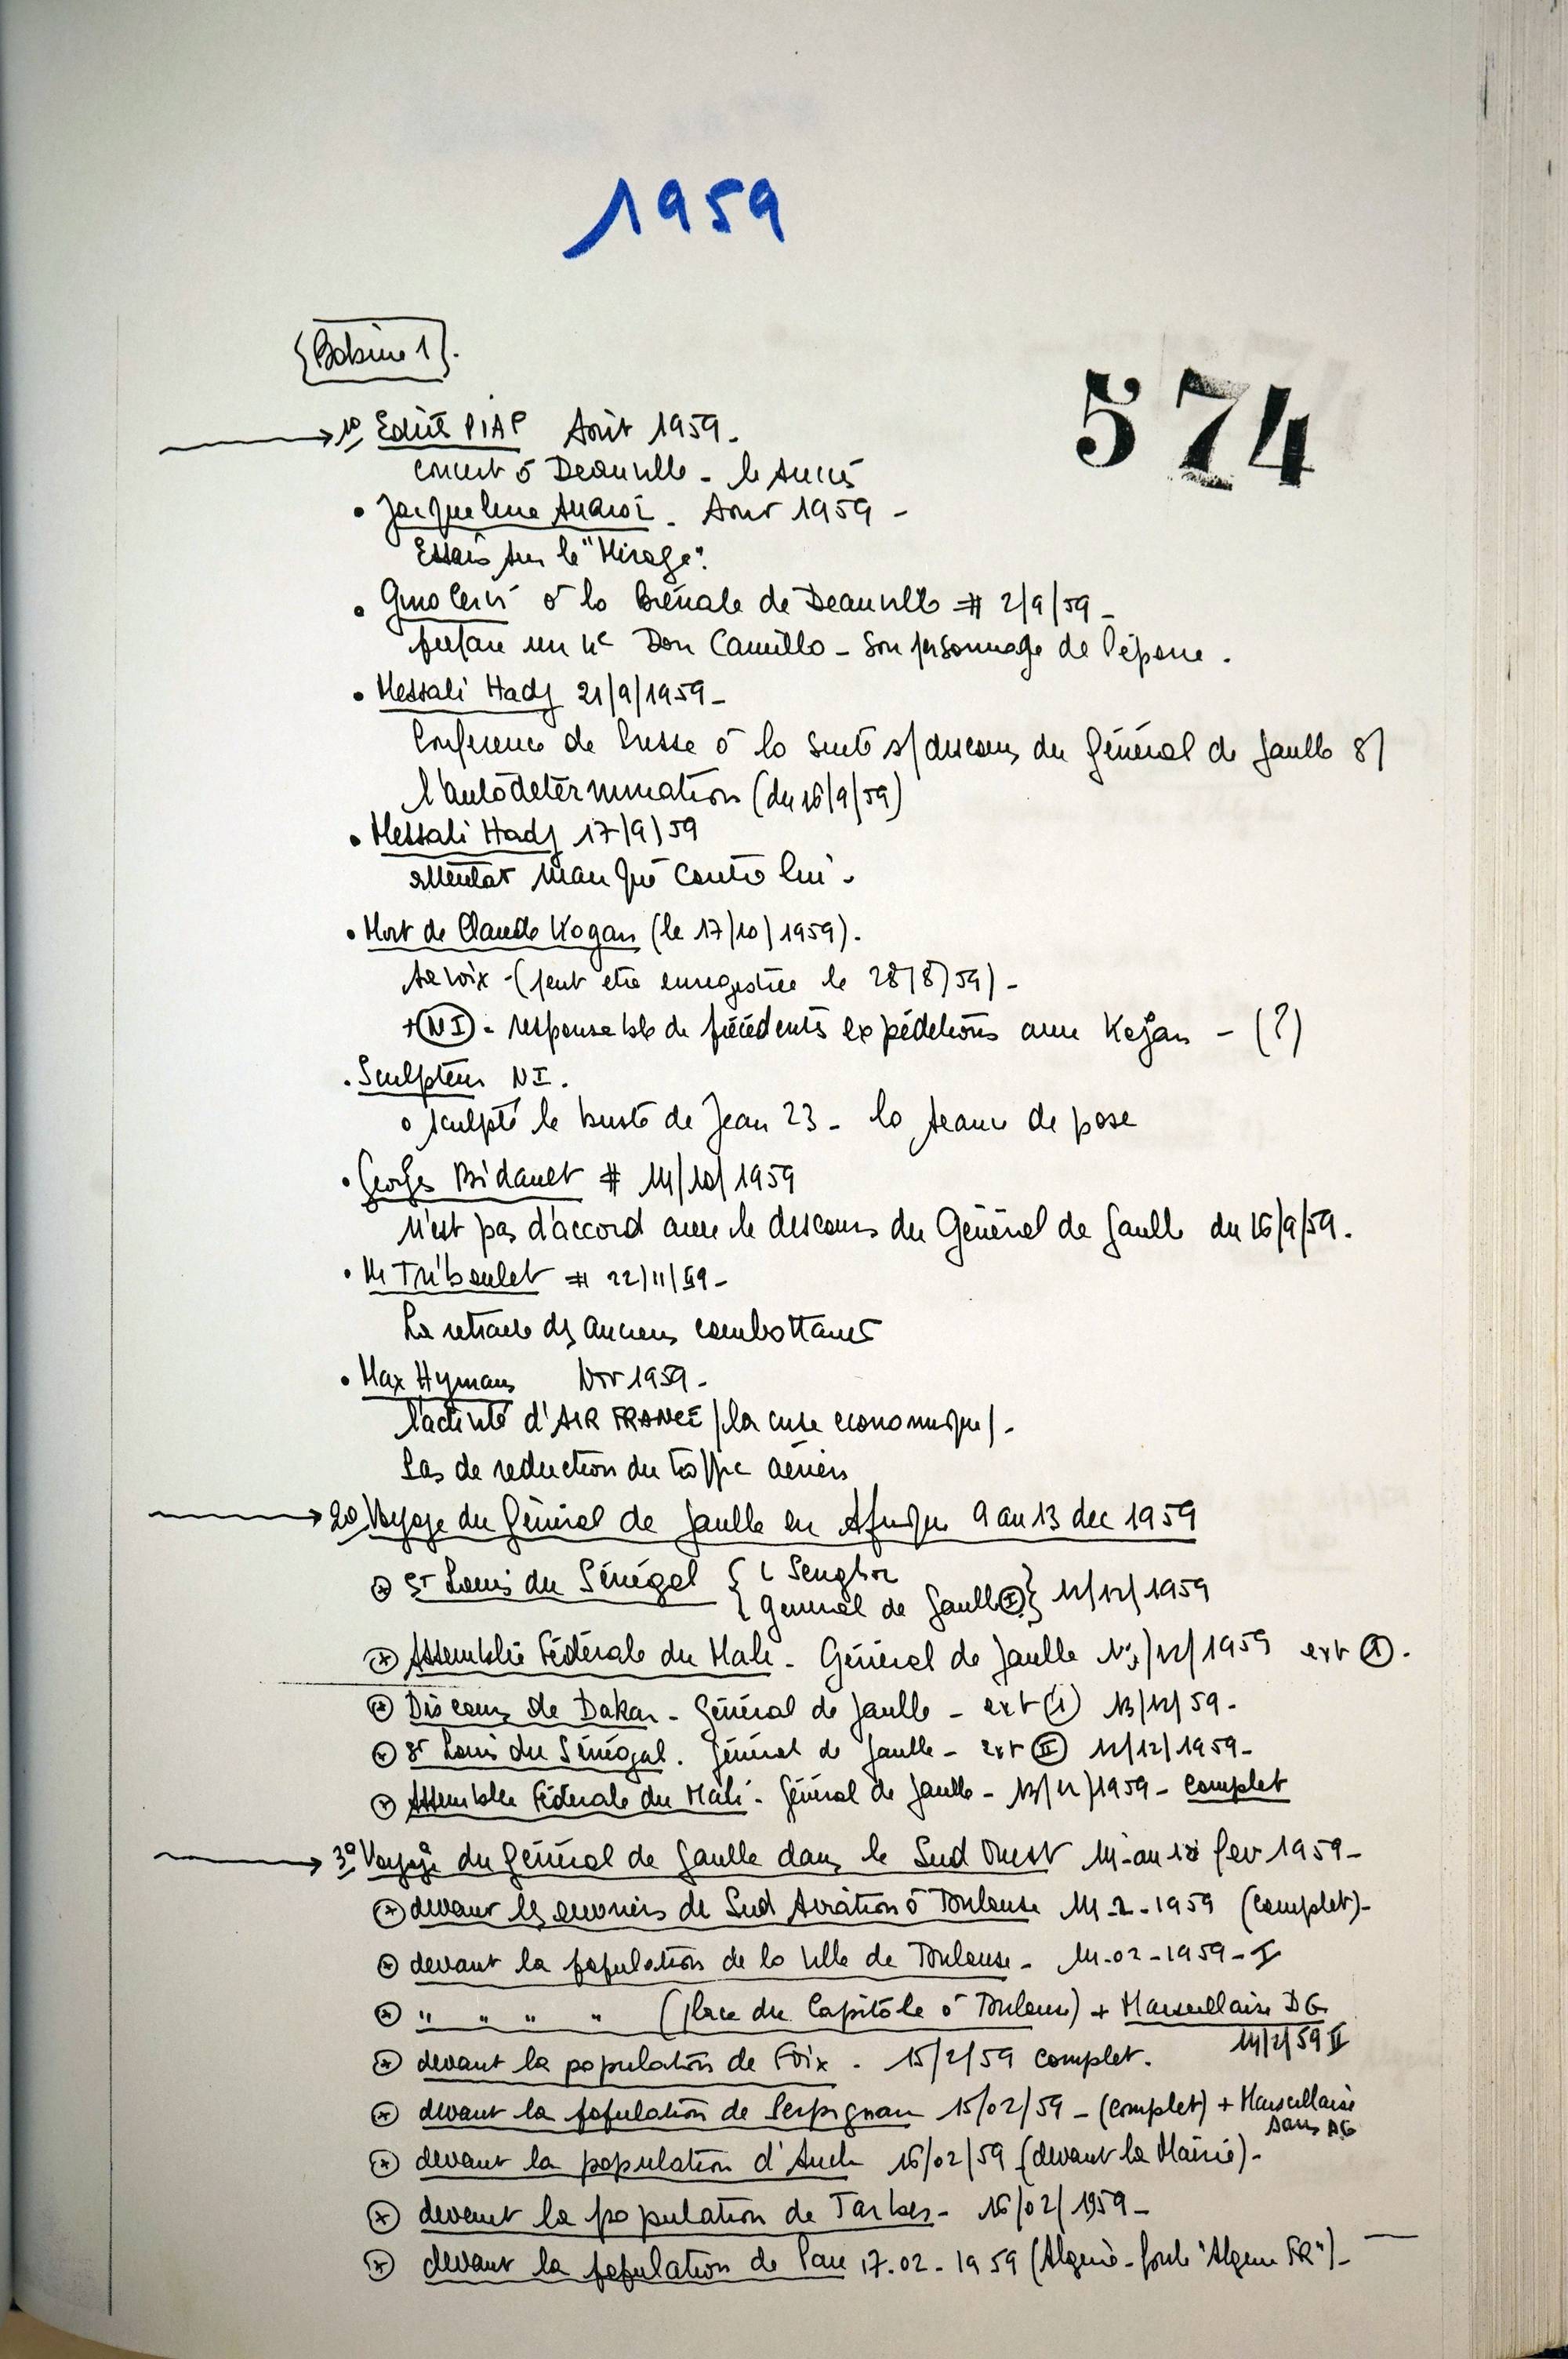 1959
Bobine 1.
574
1º Edith PIAF Août 1959.
concert à Deauville - le succès
• Jacqueline Auriol. Août 1959 -
Essais sur le "Mirage".
• Gino Cervi à la Biénale de Deauville # 2/9/59 -
prépare un nc Don Camillo - son personnage de Pépone.
• Messali Hadj 21/9/1959 -
Conférence de Presse à la suite s/ discours du Général de Gaulle s/
l'autodétermination (du 16/9/59)
• Messali Hadj 17/9/59
attentat manqué contre lui.
• Mort de Claude Kogan (le 17/10/1959).
sa voix - (peut etre enregistrée le 28/8/59) -
+ NI - responsable de précédents expéditions avec Kogan - (?)
• Sculpteur NI.
a sculpté le buste de Jean 23 - la séance de pose
• Georges Bidault # 14/10/1959
N'est pas d'accord avec le discours du Général de Gaulle du 16/9/59.
• M Triboulet # 22/11/59 -
La retraite des anciens combattants
• Max Hymans Nov 1959 -
l'activité d'AIR FRANCE / la crise economique / -
Pas de reduction du traffic aérien
2º Voyage du Général de Gaulle en Afrique 9 au 13 dec 1959
* St Louis du Sénégal { L Senghor
{ General de Gaulle I } 12/12/1959
* Assemblée Fédérale du Mali - Général de Gaulle 13/12/1959 ext 1.
* Discours de Dakar - Général de Gaulle - ext (1) 13/12/59 -
* St Louis du Sénégal. Général de Gaulle - ext II 12/12/1959 -
* Assemblée Fédérale du Mali - Général de Gaulle - 13/12/1959 - complet
3º Voyage du Général de Gaulle dans le Sud Ouest 14 au 18 fev 1959 -
* devant les ouvriers de Sud Aviation à Toulouse 14-2-1959 (complet) -
* devant la population de la Ville de Toulouse - 14-02-1959 - I
* " " " " (place du Capitole à Toulouse) + Marseillaise DG
14/2/59 II
* devant la population de Foix - 15/2/59 complet.
* devant la population de Perpignan 15/02/59 - (complet) + Marseillaise
sans DG
* devant la population d'Auch 16/02/59 (devant la Mairie) -
* devant la population de Tarbes - 16/02/1959 -
* devant la population de Pau 17.02-1959 (Algérie - foule "Algérie FR") -